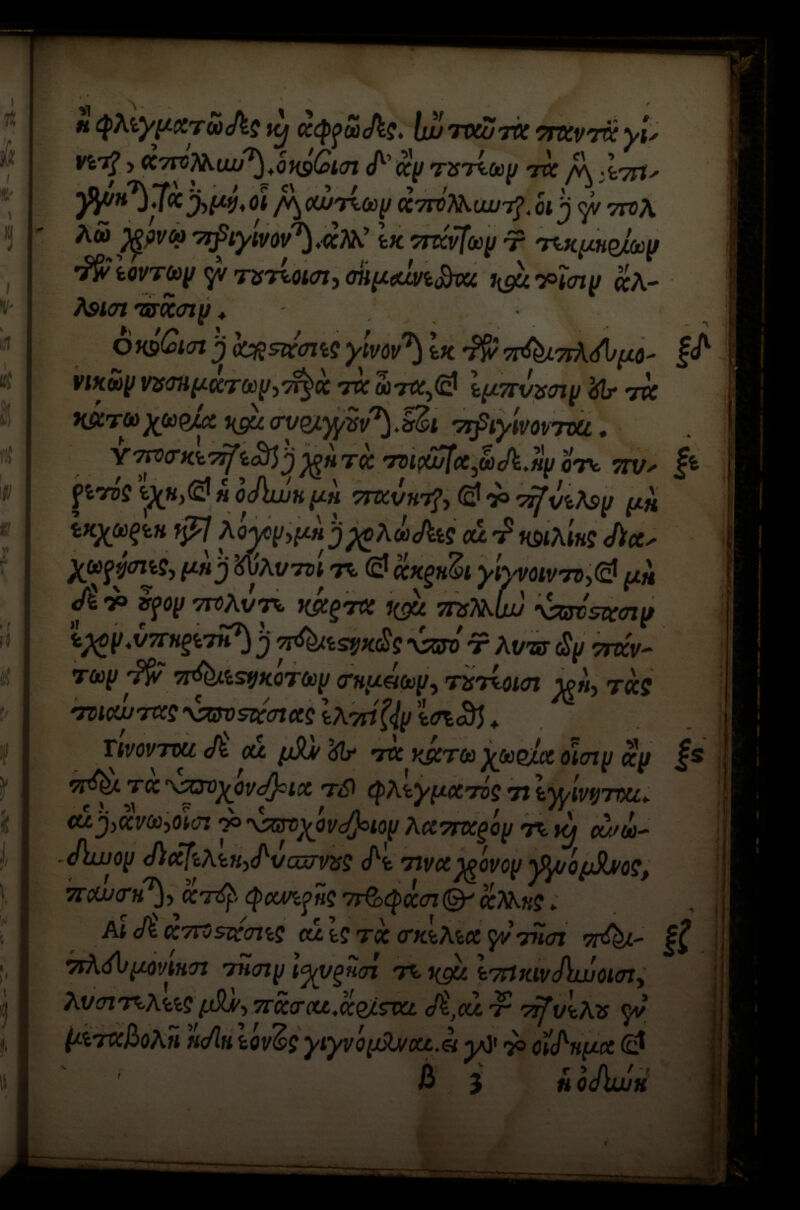 ἢ φλεγματῶδες καὶ ἀφρῶδες. ἢν ταῦτα πάντα γί-
νεται, ἀπόλλυνται. ὁκόσοισι δ' ἂν τουτέων τὰ μὲν ἐπι-
γένηται. Τὰ δὲ, μή, οἱ μὲν αὐτέων ἀπόλλυνται. οἱ δὲ ἐν πολ
λῷ χρόνῳ περιγίνονται. ἀλλ' ἐκ πάντων τῶν τεκμηρίων
τῶν ἐόντων ἐν τουτέοισι, σημαίνεσθαι καὶ τοῖσιν ἄλ-
λοισι πᾶσιν.
Ὁκόσοισι δὲ ἀποστάσιες γίνονται ἐκ τῶν περιπλευμο- ξδ
νικῶν νουσημάτων, παρὰ τὰ ὦτα, καὶ ἐμπύουσιν εἰς τὰ
κάτω χωρία καὶ συριγγοῦνται. οὗτοι περιγίνονται.
Ὑποσκέπτεσθαι δὲ χρὴ τὰ τοιαῦτα, ὧδε. ἢν ὅτε πυ- ξε
ρετὸς ἔχῃ, καὶ ἡ ὀδύνη μὴ παύηται, καὶ τὸ πτύελον μὴ
ἐκχωρέῃ κατὰ λόγον, μὴ δὲ χολώδεες αἱ τῆς κοιλίης δια-
χωρήσιες, μὴ δὲ εὔλυτοί τε καὶ ἄκρητοι γίγνοιντο, καὶ μὴ
δὲ τὸ οὖρον πολύτε κάρτα καὶ πουλλὴν ὑπόστασιν
ἔχον. ὑπηρετῆται δὲ περιεστηκῶς ὑπὸ τῶν λοιπῶν πάν-
των τῶν περιεστηκότων σημείων, τουτέοισι χρὴ, τὰς
τοιαύτας ὑποστάσιας ἐλπίζειν ἔσεσθαι.
Γίνονται δὲ αἱ μὲν εἰς τὰ κάτω χωρία οἷσιν ἂν ξς
περὶ τὰ ὑποχόνδρια τοῦ φλέγματός τι ἐγγίνηται.
αἱ δὲ, ἄνω, οἷσι τὸ ὑποχόνδριον λαπαρόν τε καὶ ἀνώ-
δυνον διατελέῃ, δύσπνους δέ τινα χρόνον γενόμενος,
παύσηται, ἄτερ φανερῆς προφάσιος ἄλλης.
Αἱ δὲ ἀποστάσιες αἱ ἐς τὰ σκέλεα ἐν τῇσι περι- ξζ
πλευμονίῃσι τῇσιν ἰσχυρῇσί τε καὶ ἐπικινδύνοισι,
λυσιτελέες μὲν, πᾶσαι. ἄρισται δὲ, αἱ τοῦ πτυέλου ἐν
μεταβολῇ ἤδη ἐόντος γιγνόμεναι. εἰ γὰρ τὸ οἴδημα καὶ
β 3 ἡ ὀδύνη